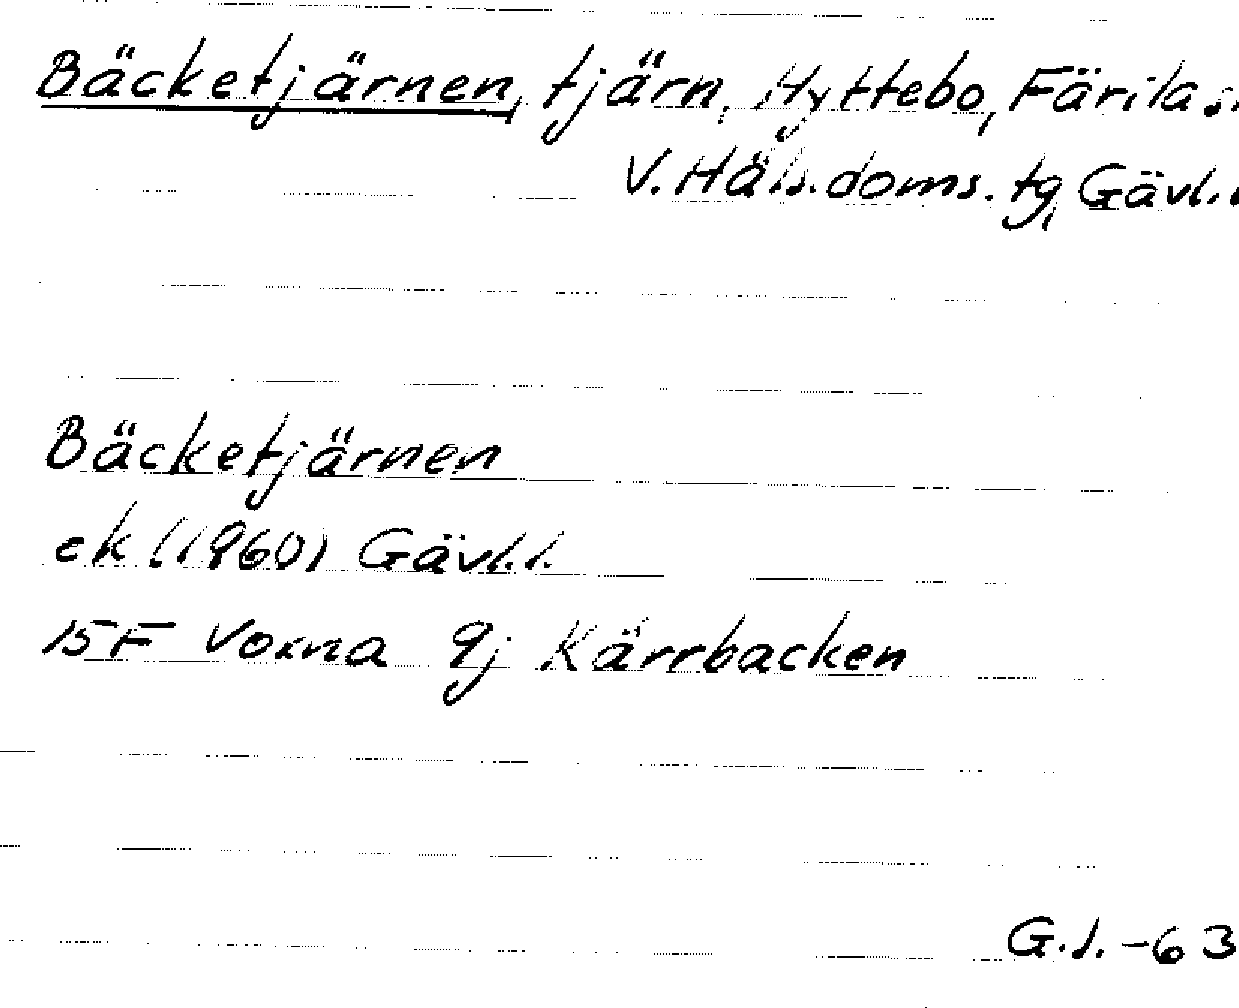 Bäcketjärnen, tjärn, Hyttebo, Färila s
V. Häls. doms. tg, Gävl. l
Bäcketjärnen
ek (1960) Gävl. l.
15F Voxna 9j Kärrbacken
G.J. -63